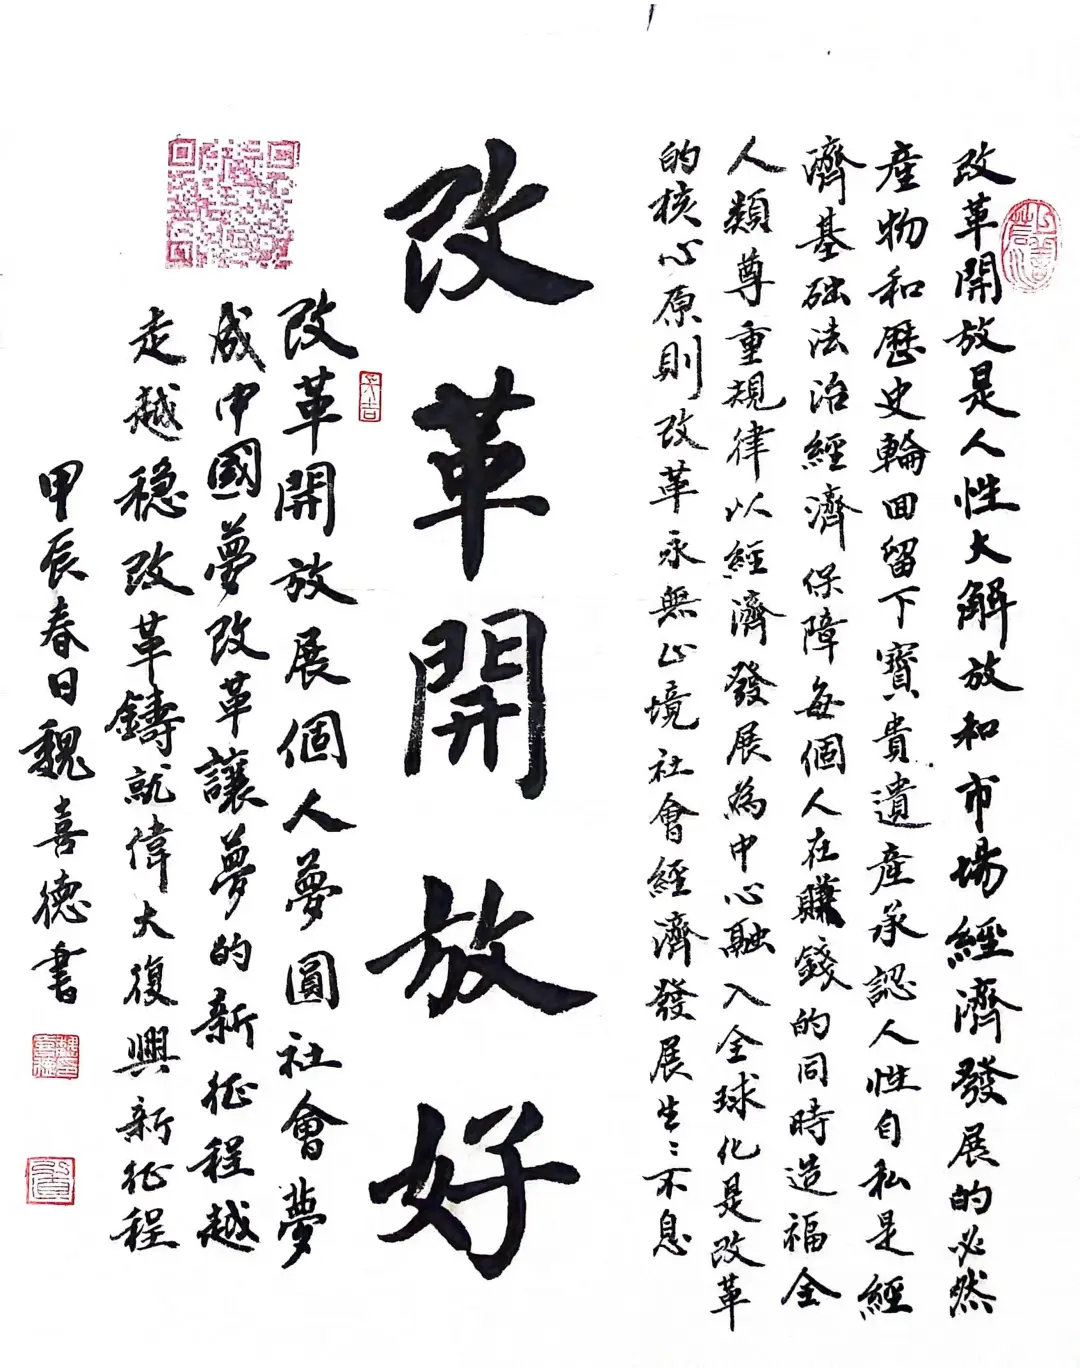 改革開放是人性大解放和市場經濟發展的必然
產物和歷史輪回留下寶貴遺產承認人性自私是經
濟基础法治經濟保障每個人在賺錢的同時造福全
人類尊重規律以經濟發展為中心融入全球化是改革
的核心原則改革永無止境社會經濟發展生生不息
改革開放好
改革開放展個人夢圓社會夢
成中國夢改革讓夢的新征程越
走越稳改革鑄就偉大復興新征程
甲辰春日魏喜德書